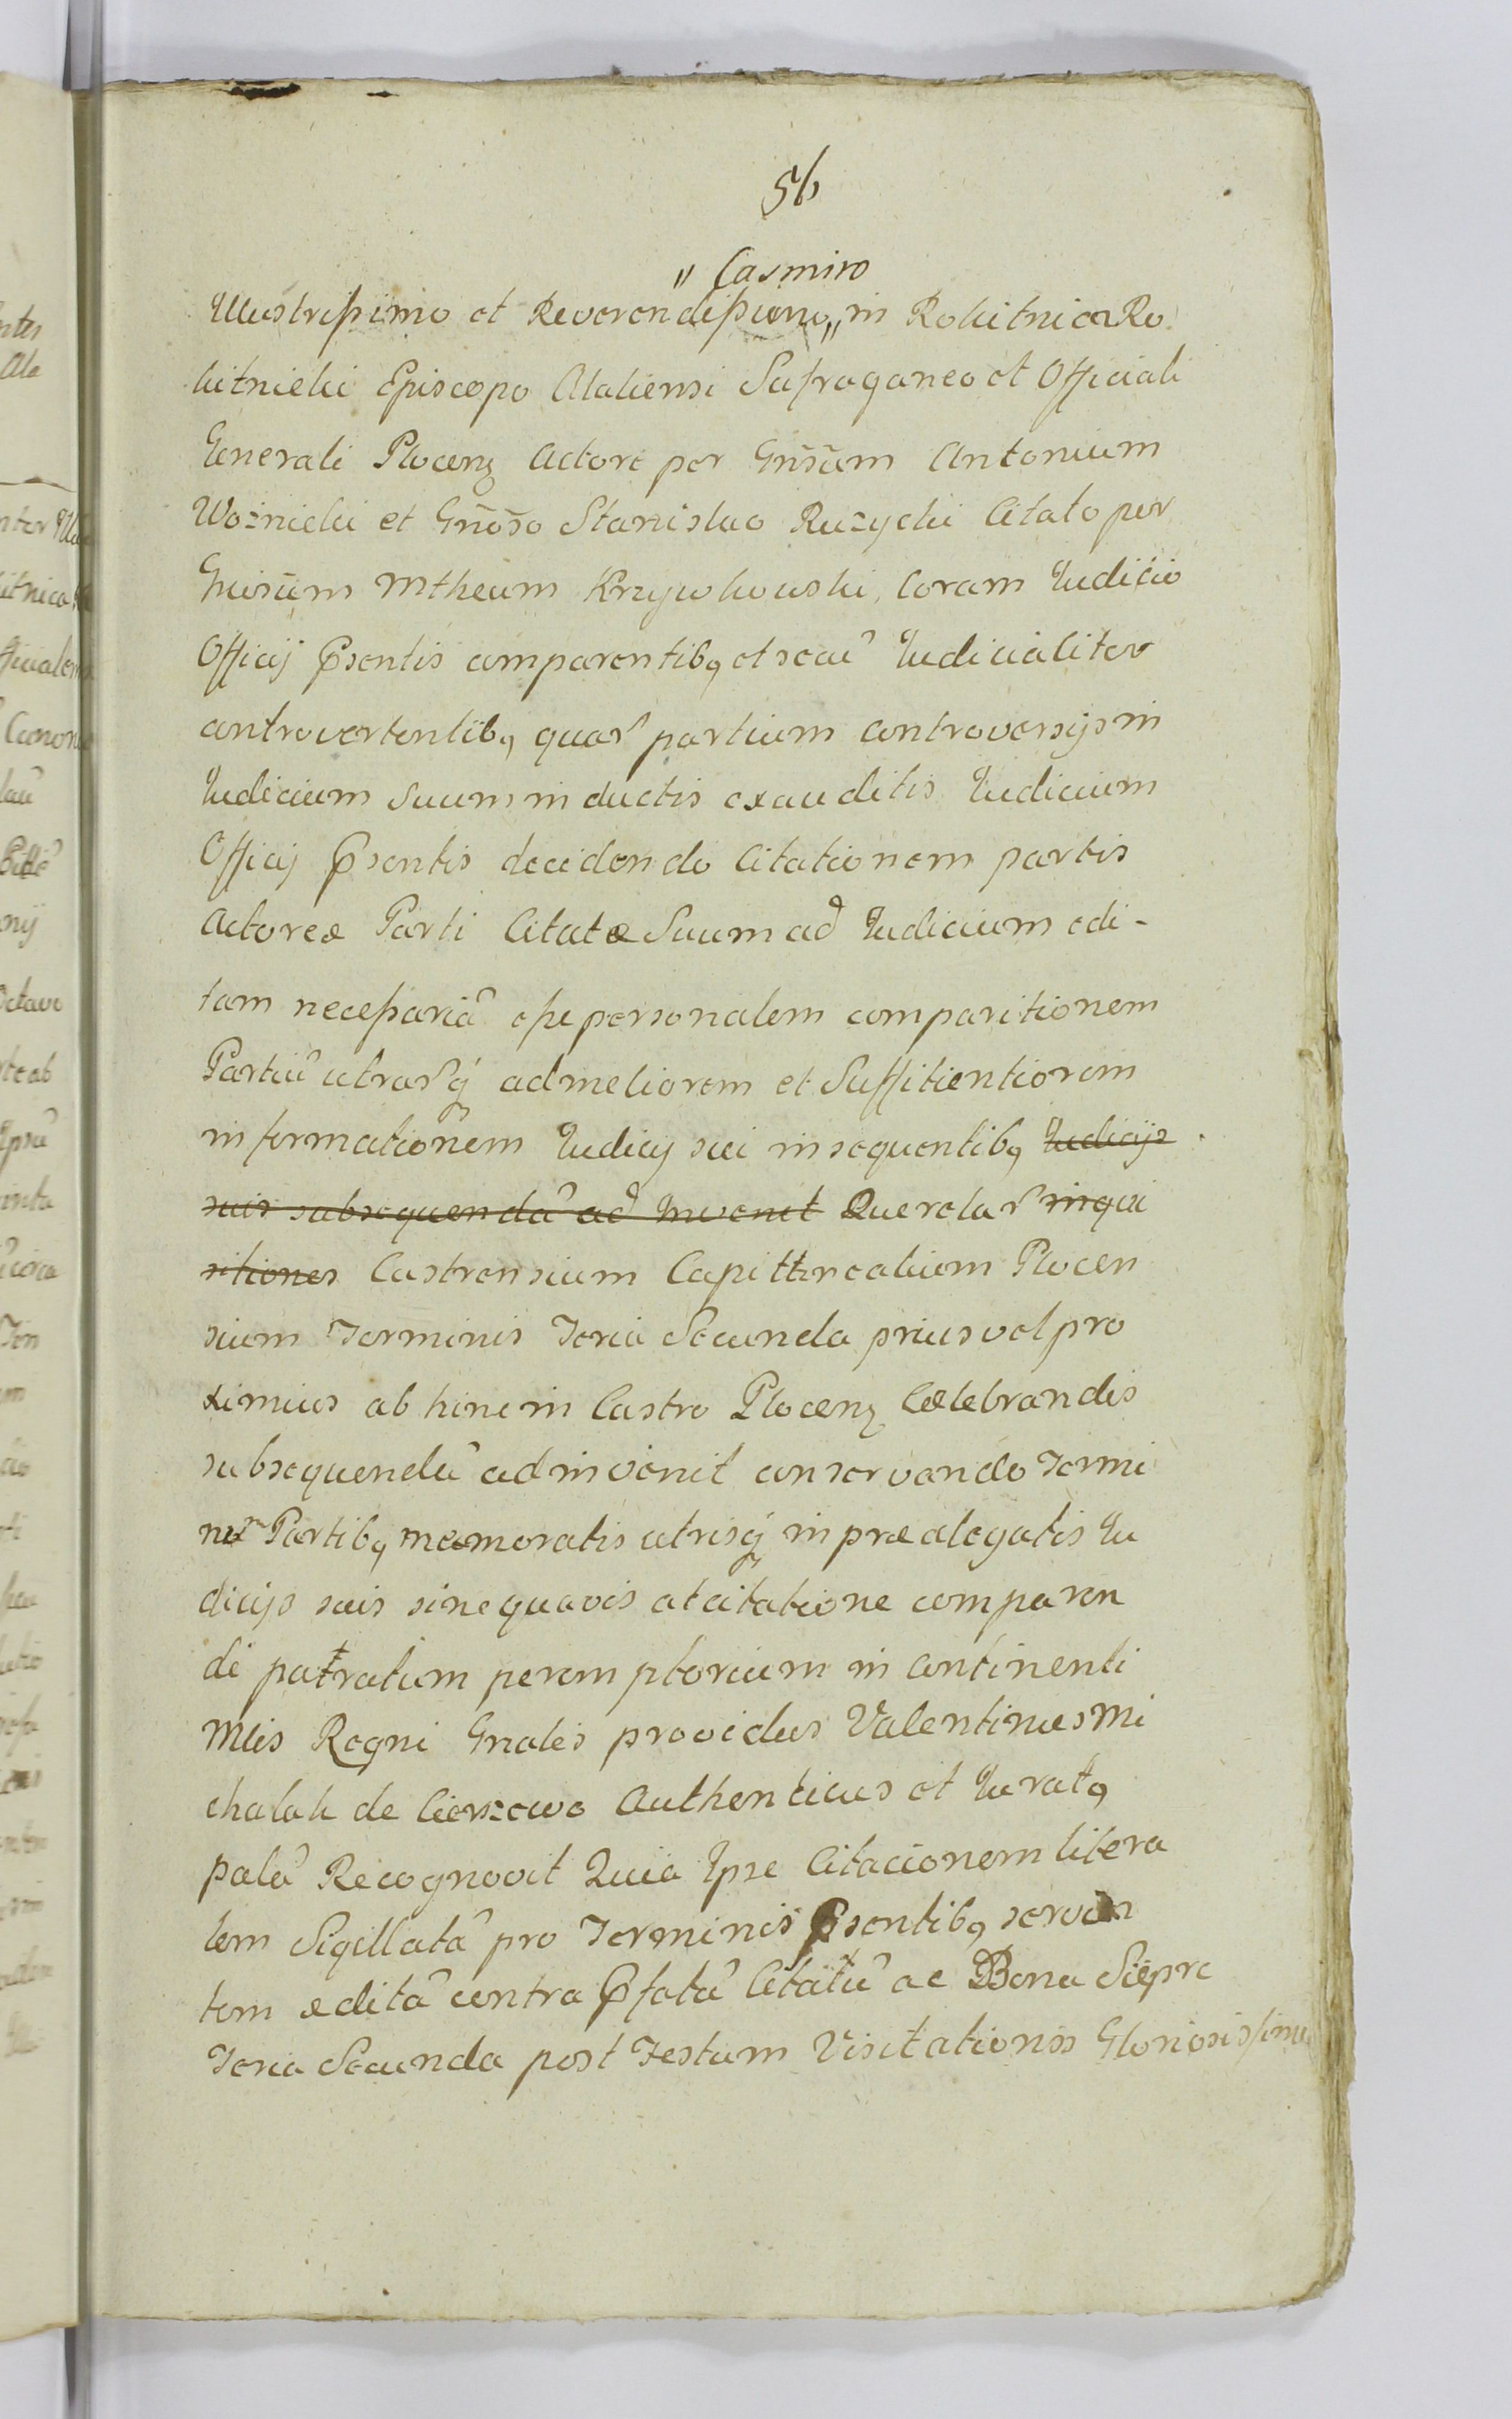 56
„ Casmiro
Illustrissimo et Reverendissimo „ in Rokitnica Ro
kitnicki Episcopo Ataliensi Sufraganeo et Officiali
Generali Plocenꝫ Actore per Gnr̃sum Antonium
Woznicki et Gnõso Stanislao Ruzycki Citato per
Gnisum Mtheum Krzywkowski, Coram Iudicio
Officij p̃sentis comparentibꝯ et secũ Iudicialiter
controvertentibꝯ quar̃ partium controversijs in
Iudicium suum inductis exauditis Iudicium
Officij p̃sentis decidendo Citationem partis
Actoreæ Parti Citatæ Suum ad Iudicium edi-
tam necessariã esse personalem comparitionem
Partiũ utrar̃q̃ ad meliorem et Suffitientiorem
informationem Iudicij sui in sequentibꝯ Iudicijs
suis subsequendã ad invenit Querelar̃ inqui
sitiones Castrensium Capittnealium Plocen
sium Terminis Feria Secunda prius vel pro
ximius ab hinc in Castro Plocenꝫ Celebrandis
subsequendã adinvenit conservando Termi
nũ Partibꝯ memoratis utrisq̃ in præalegatis Iu
dicijs suis sine quavis atcitatione comparen
di patratum peremptorium in continenti
Mlis Regni Gnales providus Valentinus Mi
chalak de Cierszewo Authenticus et Iuratꝯ
palã Recognovit Quia Ipse Citacionem litera
lem Sigillatã pro Terminis p̃sentibꝯ servien
tem æditã contra p̃fatũ Citatũ ac Bona
Feria Secunda post Festum Visitationis Gloriosissimæ